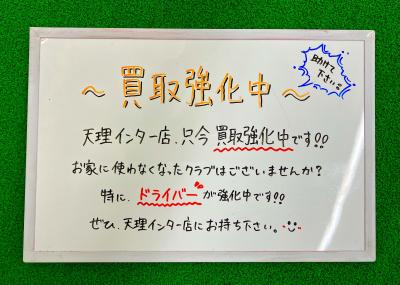 助けて
下さい。
～買取強化中～
天理インター店、只今買取強化中です!!
お家に使わなくなったクラブはございませんか?
特に、ドライバーが強化中です!!
ぜひ、天理インター店にお持ち下さい。